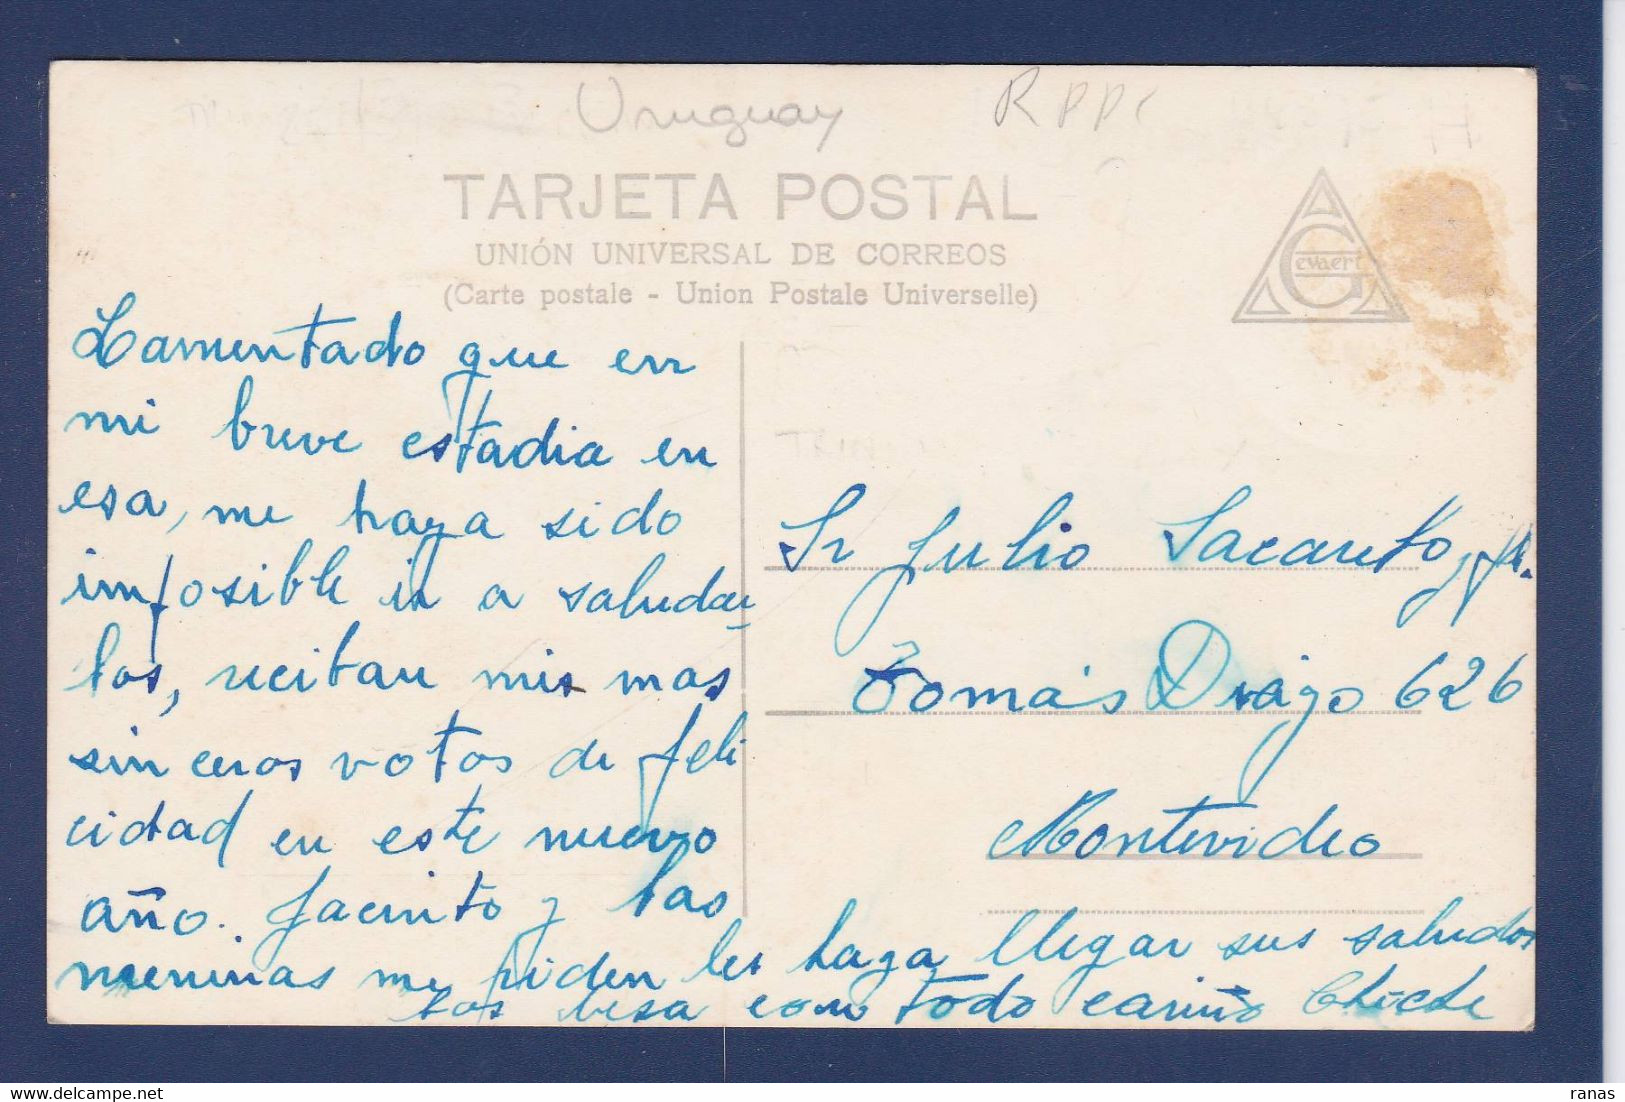 Uruguay RPPC
TARJETA POSTAL
UNIÓN UNIVERSAL DE CORREOS
(Carte postale - Union Postale Universelle)
Gevaert
Lamentado que en
mi breve estadia en
esa, me haya sido
imposible ir a saludar
los, reciban mis mas
sinceros votos de feli
cidad en este nuevo
año. Jacinto y las
meninas me piden les haga llegar sus saludos
los besa con todo cariño Chiche
Sr Julio Sacaretto y fl.
Tomás Diago 626
Montevideo
ranas